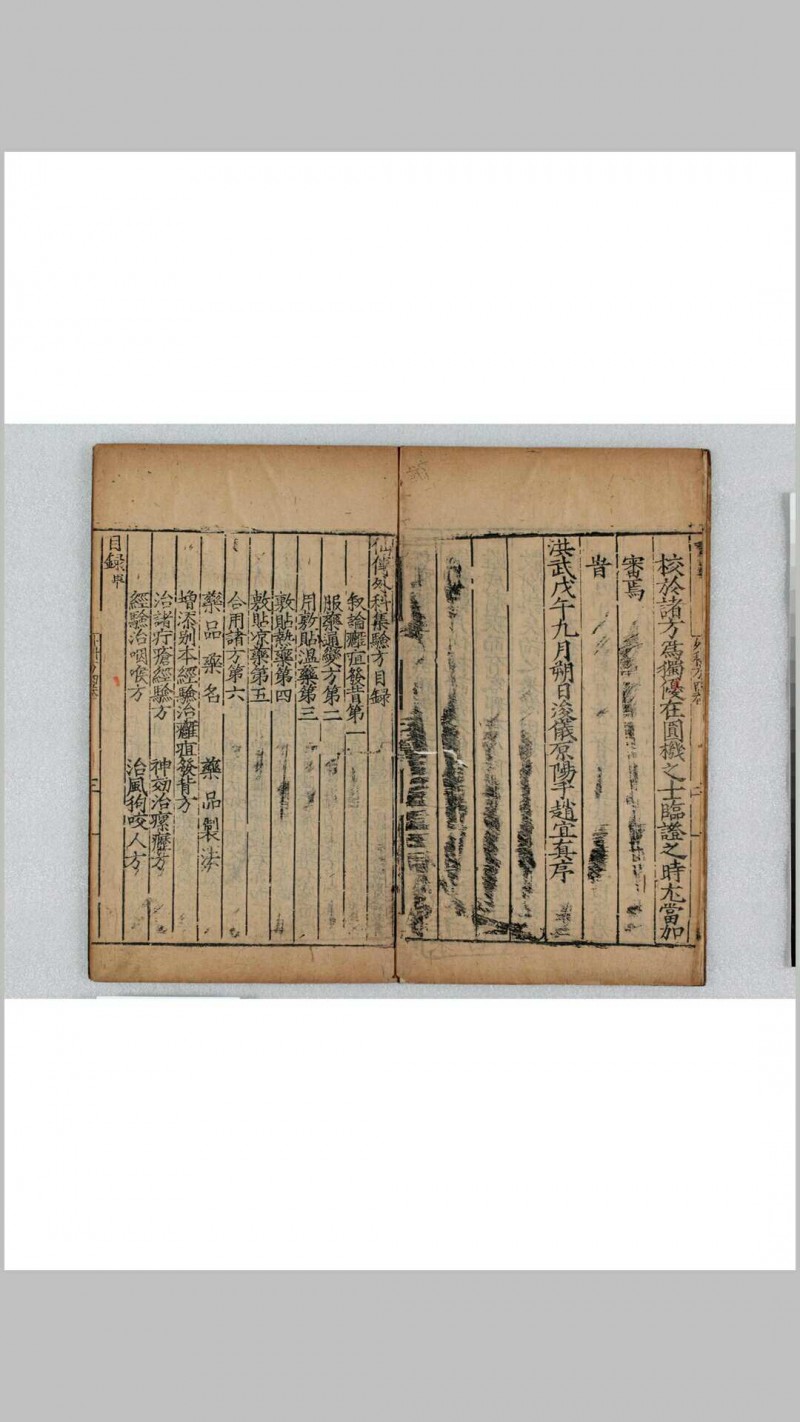 校於諸方為獨優在圓機之士臨證之時尤當加
審焉
旹
洪武戊午九月朔日浚儀原陽子趙宜真序
仙傳外科集驗方目錄
叙論癰疽發背第一
服藥通變方第二
用敷貼溫藥第三
敷貼熱藥第四
敷貼凉藥第五
合用諸方第六
藥品藥名 藥品製法
增添別本經驗治癰疽發背方
治諸疔瘡經驗方 神効治瘰癧方
經驗治咽喉方 治風狗咬人方
目錄畢
三